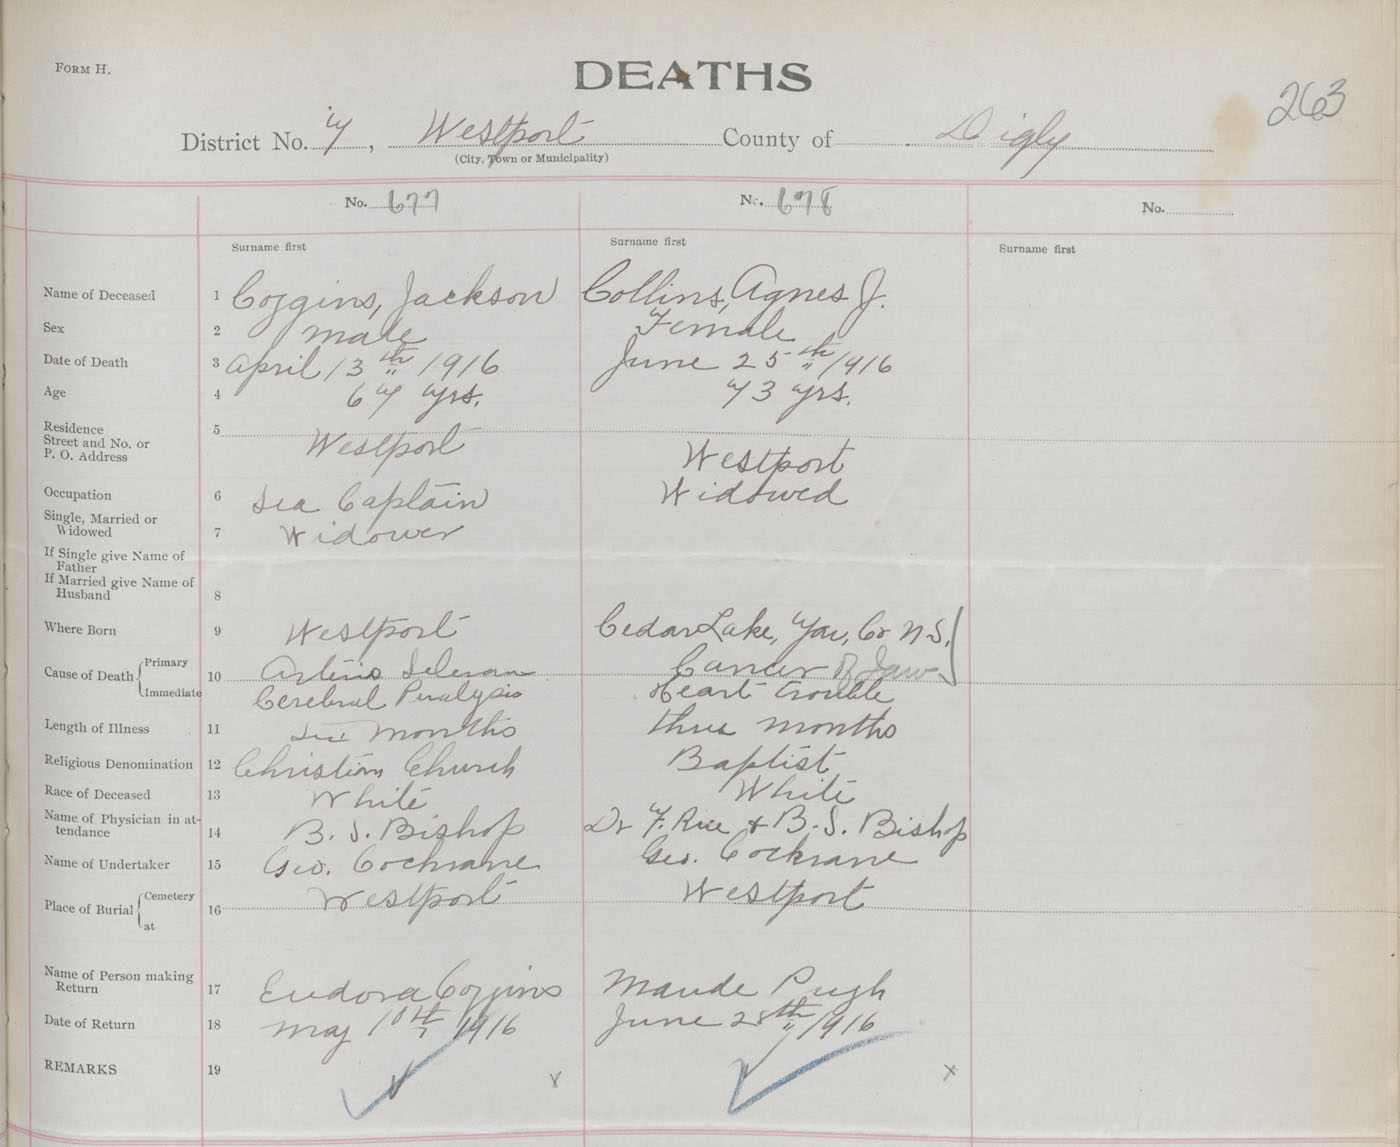 FORM H.
DEATHS
263
District No. 7, Westport County of Digby
(City, Town or Municipality)
No. 677 No. 678 No.
Surname first Surname first Surname first
Name of Deceased 1 Coggins, Jackson Collins, Agnes J.
Sex 2 Male Female
Date of Death 3 April 13th 1916 June 25th 1916
Age 4 67 yrs. 73 yrs.
Residence
Street and No. or
P. O. Address 5 Westport Westport
Occupation 6 Sea Captain Widowed
Single, Married or
Widowed 7 Widower
If Single give Name of
Father
If Married give Name of
Husband 8
Where Born 9 Westport Cedar Lake, Yar, Co N.S.
Cause of Death Primary 10 Cancer of Jaw
Immediate Cerebral Paralysis Heart trouble
Length of Illness 11 months three months
Religious Denomination 12 Christian Church Baptist
Race of Deceased 13 White White
Name of Physician in at-
tendance 14 B. S. Bishop Dr F. Rice & B. S. Bishop
Name of Undertaker 15 Geo. Cochrane Geo. Cockrane
Place of Burial Cemetery 16 Westport Westport
at
Name of Person making
Return 17 Eudora Coggins Maude Pugh
Date of Return 18 May 10th 1916 June 28th 1916
REMARKS 19 x x